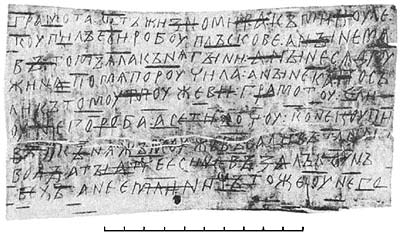 грамота : ѡтъ жизномира къ микоуле :
коупилъ еси : робоу : плъскове : а нынѣ мѧ :
въ томъ : ѧла кънѧгыни : а нынѣ сѧ дроу
жина : по мѧ пороучила : а нынѣ ка : посъ
ли къ томоу : моужеви : грамотоу : е ли
оу него роба : а се ти хочоу : коне коупи
въ : и кънѧжъ моужъ въсадивъ : та на съ
воды : а ты атче еси не възалъ коунъ :
техъ : а не емли : ничъто же оу него :